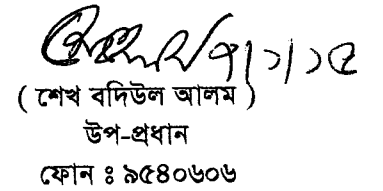 ৭/১/১৫
( শেখ বদিউল আলম )
উপ-প্রধান
ফোন ঃ ৯৫৪০৬০৬